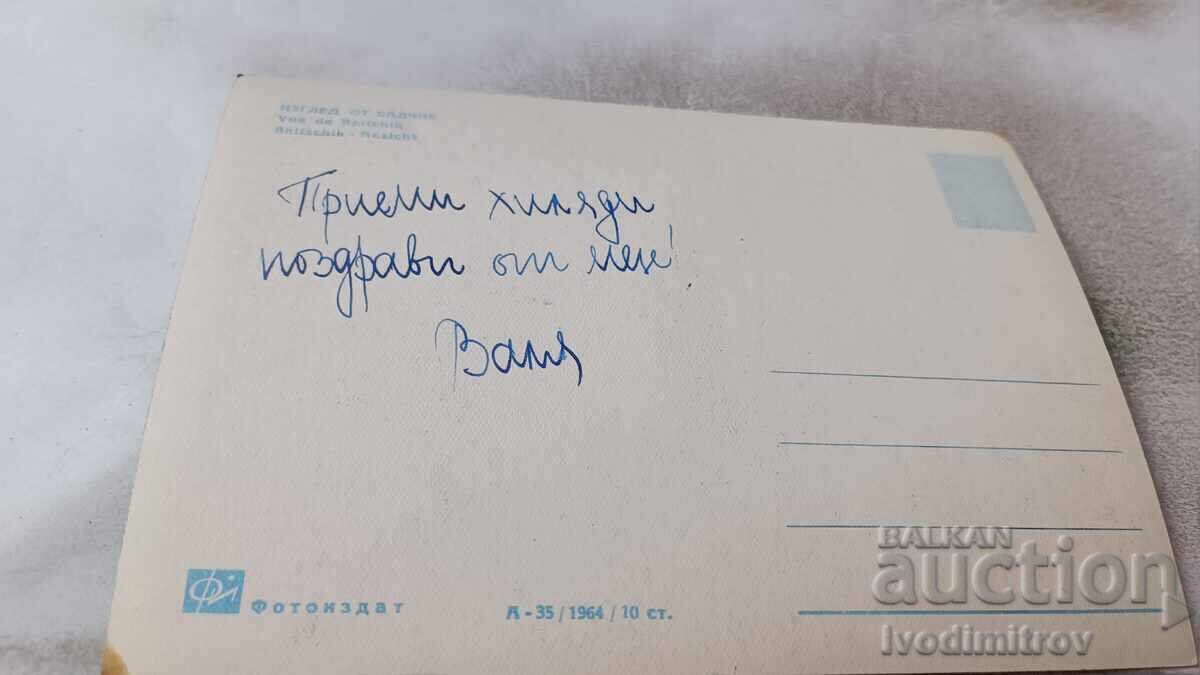 ИЗГЛЕД ОТ БАЛЧИК
Vue de Baltchik
Baltschik - Ansicht
Приеми хиляди
поздрави от мен!
Ваня
Фотоиздат
А - 35 / 1964 / 10 ст.
BALKAN
auction
Ivodimitrov